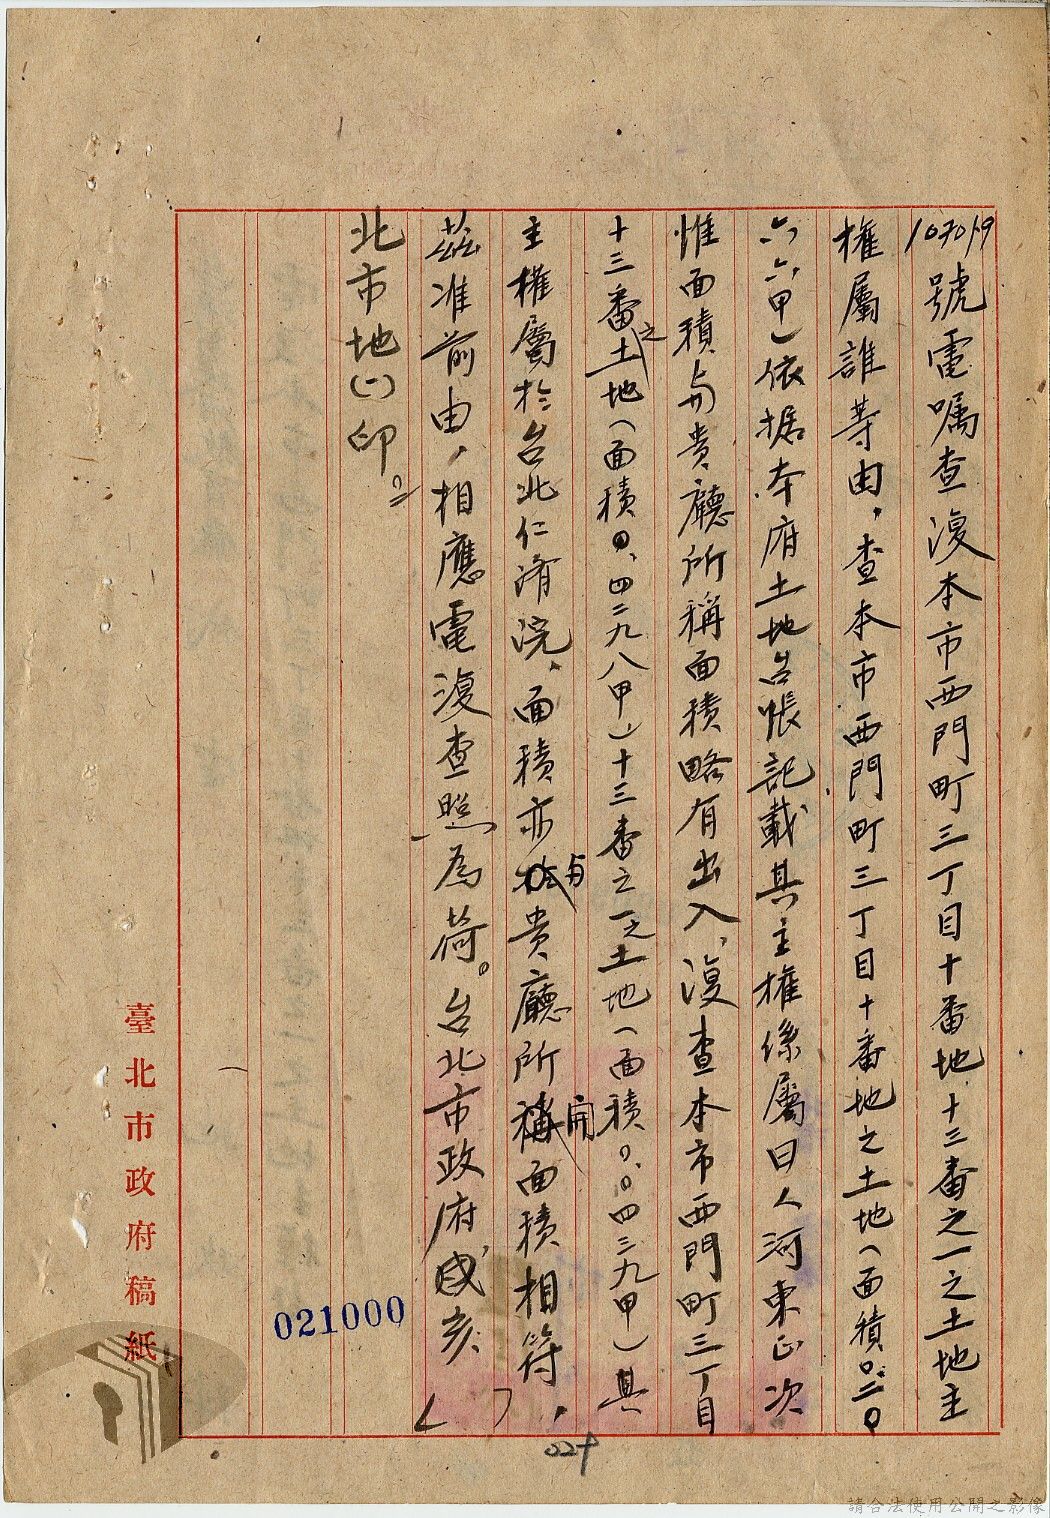 10701/9號電囑查復本市西門町三丁目十番地十三番之一之土地主
權屬誰等由，查本市西門町三丁目十番地之土地（面積〇.二〇
六六甲）依据本府土地台帳記載其主權係屬日人河東正次
惟面積与貴廳所稱面積略有出入，復查本市西門町三丁目
十三番之土地（面積〇、四二九八甲）十三番之一之土地（面積〇.〇四三九甲）其
主權屬於台北仁濟院，面積亦与貴廳所開面積相符，
茲准前由，相應電復查照為荷。台北市政府戌亥（　）
北市地（一）印。
臺北市政府稿紙
021000
024
請合法使用公開之影像